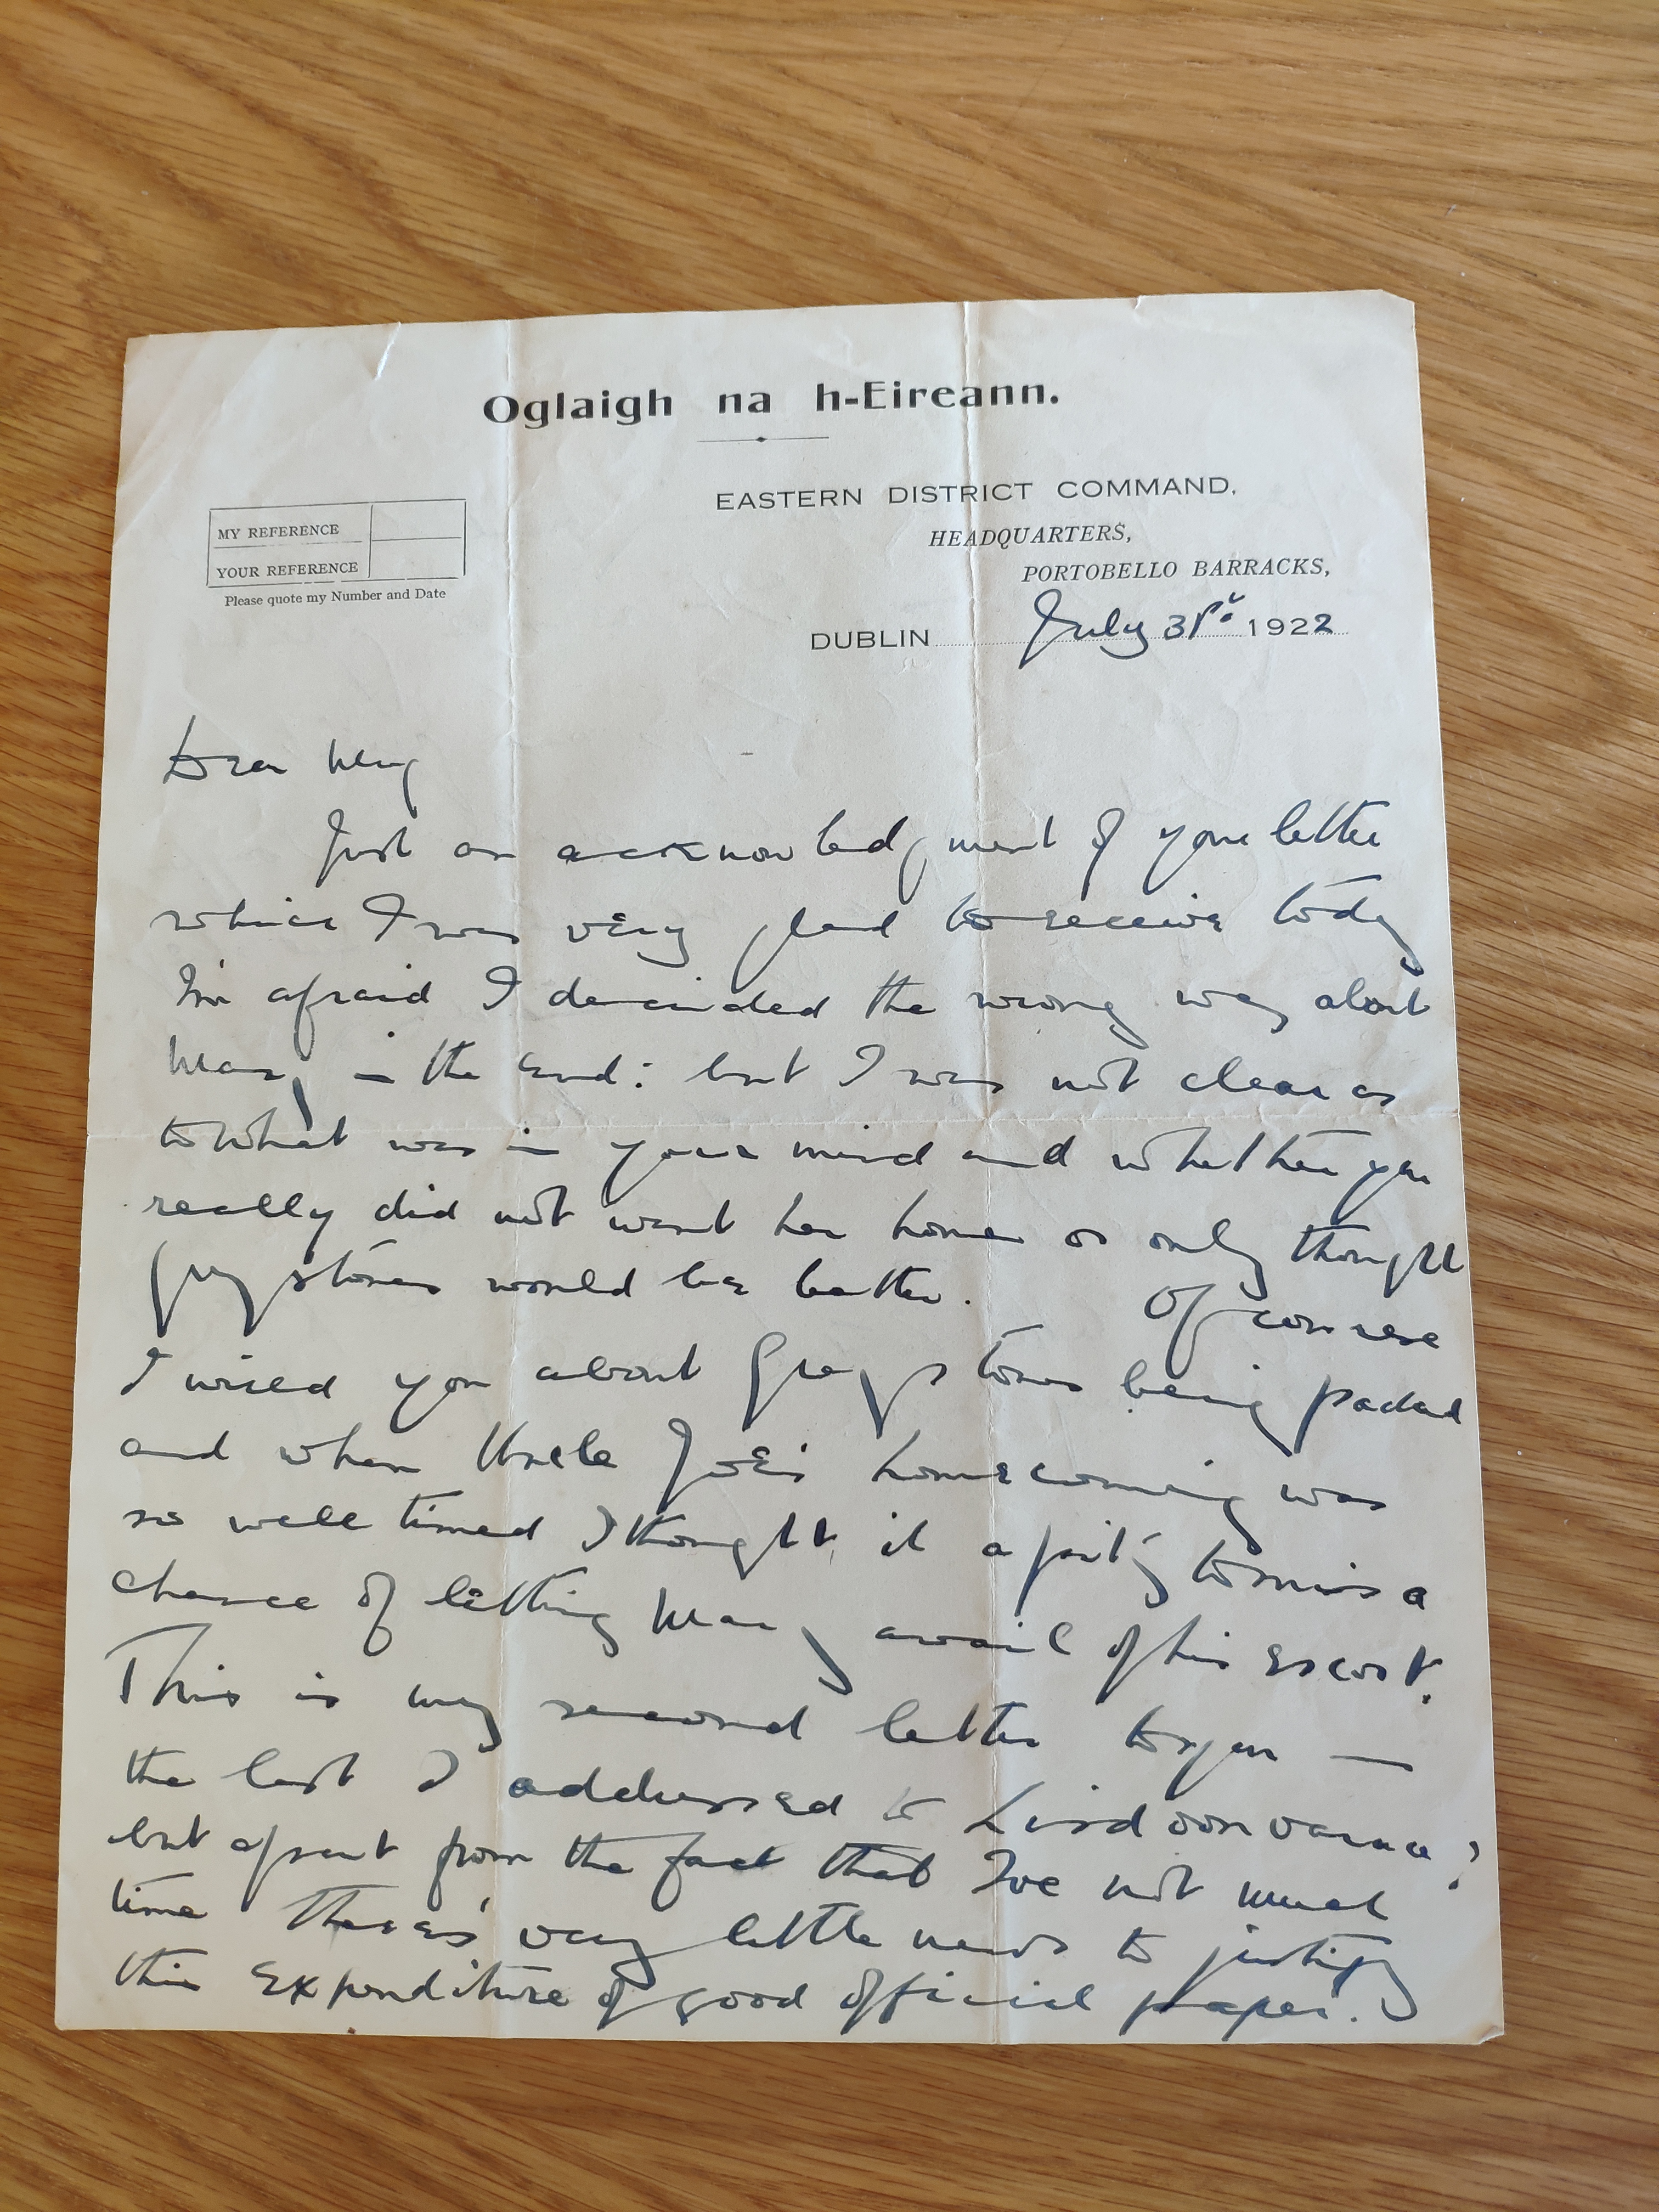 Oglaigh na h-Eireann.
EASTERN DISTRICT COMMAND,
HEADQUARTERS,
PORTOBELLO BARRACKS,
MY REFERENCE
YOUR REFERENCE
Please quote my Number and Date
DUBLIN July 31st 1922
Dear
Just an acknowledgment of your letter
which I was very glad to receive today
I'm afraid I decided the wrong way about
Mary in the end: but I was not clear as
to what was in your mind and whether you
really did not want her home or only thought
Greystones would be better. Of course
I wired you about Greystones being packed
and when Uncle Joe's homecoming was
so well timed I thought it a pity to miss a
chance of letting Mary avail of his escort.
This is my second letter to you —
the last I addressed to Lisdoonvarna;
but apart from the fact that I've not much
time there's very little news to justify
this expenditure of good official paper.